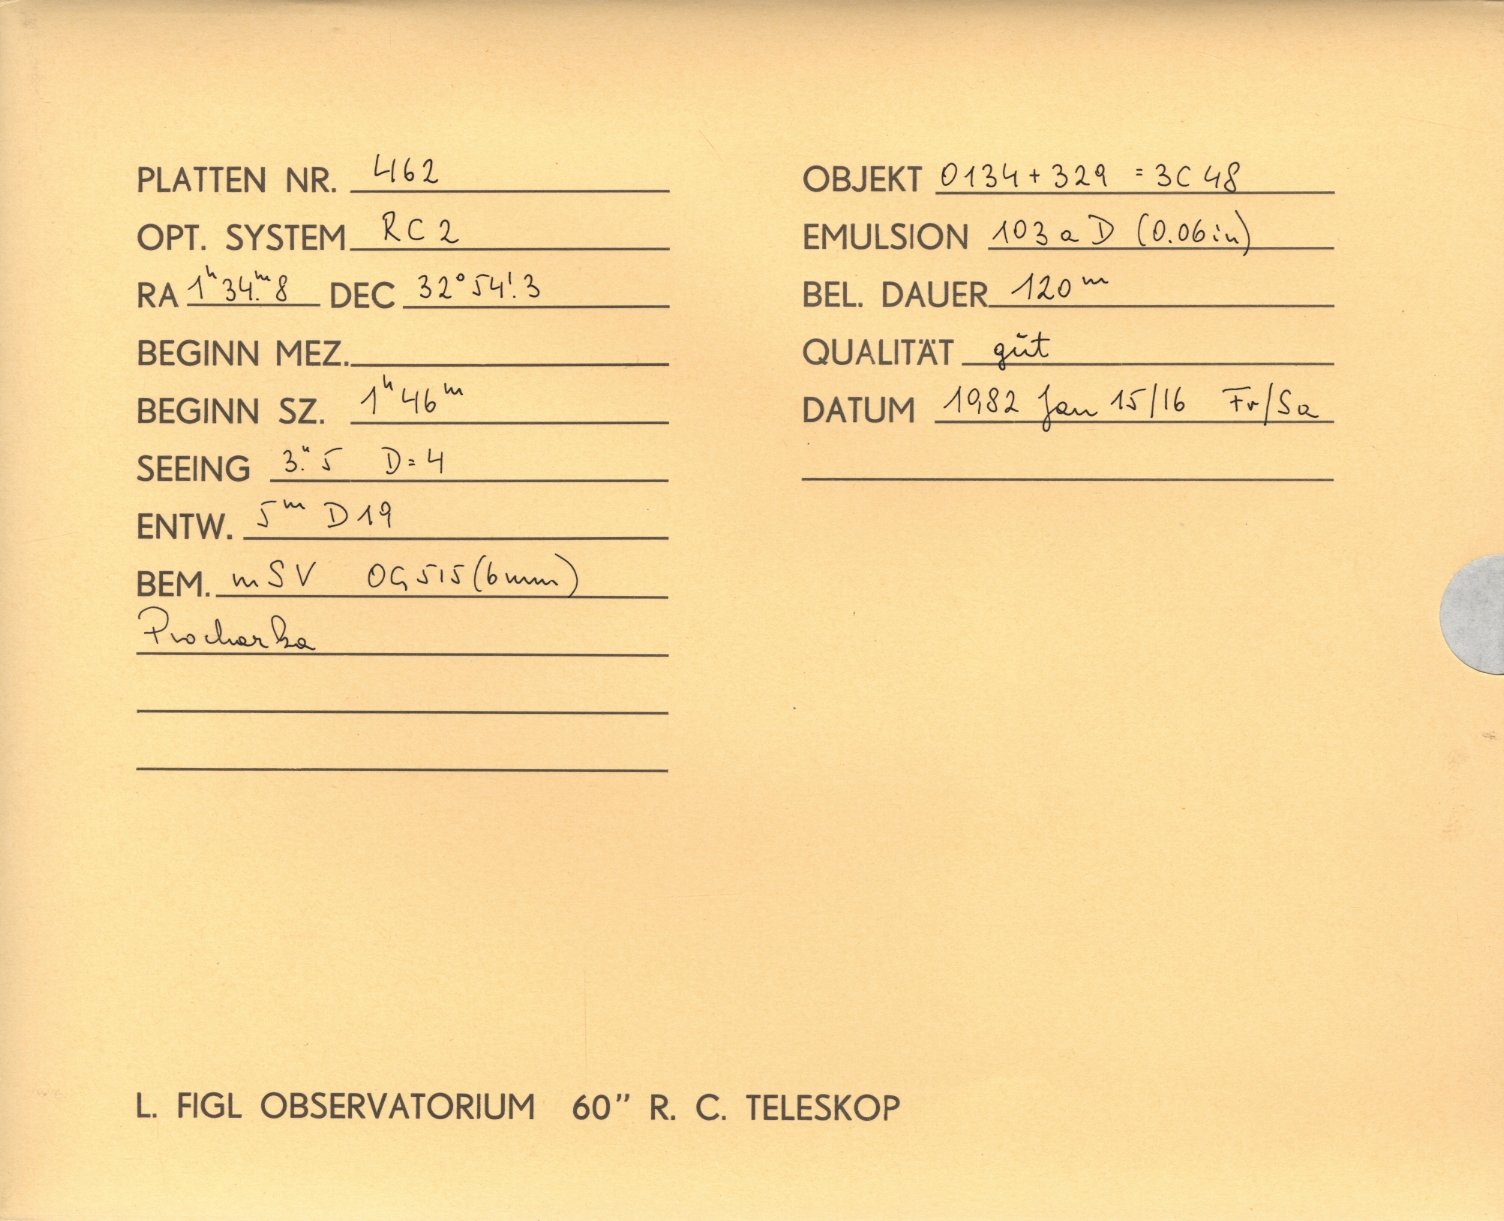 PLATTEN NR. 4162
OPT. SYSTEM RC2
RA 1ʰ34ᵐ.8 DEC 32°54'.3
BEGINN MEZ.
BEGINN SZ. 1ʰ46ᵐ
SEEING 3".5 D=4
ENTW. 5ᵐ D19
BEM. mSV OG515(6mm)
Prochazka
OBJEKT 0134+329 = 3C48
EMULSION 103aD (0.06in)
BEL. DAUER 120ᵐ
QUALITÄT gut
DATUM 1982 Jan 15/16 Fr/Sa
L. FIGL OBSERVATORIUM 60" R. C. TELESKOP